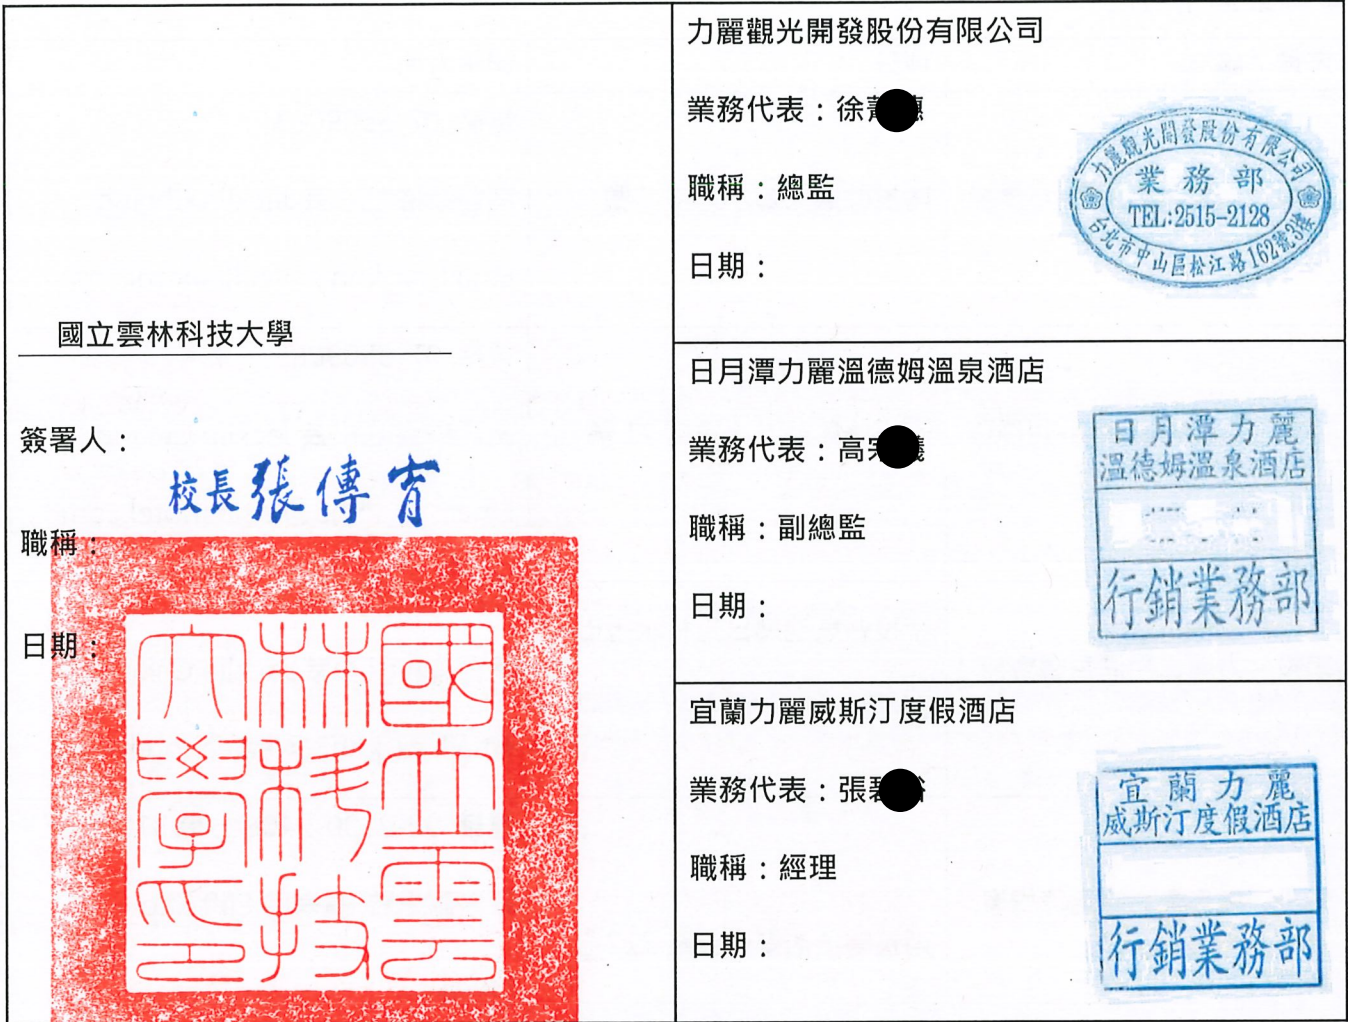 國立雲林科技大學
簽署人：
校長張傳育
職稱：
日期：
國立雲
林科技
大學印
力麗觀光開發股份有限公司
業務代表：徐
職稱：總監
日期：
力麗觀光開發股份有限公司
業務部
TEL:2515-2128
台北市中山區松江路162號3樓
日月潭力麗溫德姆溫泉酒店
業務代表：高
職稱：副總監
日期：
日月潭力麗
溫德姆溫泉酒店
行銷業務部
宜蘭力麗威斯汀度假酒店
業務代表：張
職稱：經理
日期：
宜蘭力麗
威斯汀度假酒店
行銷業務部